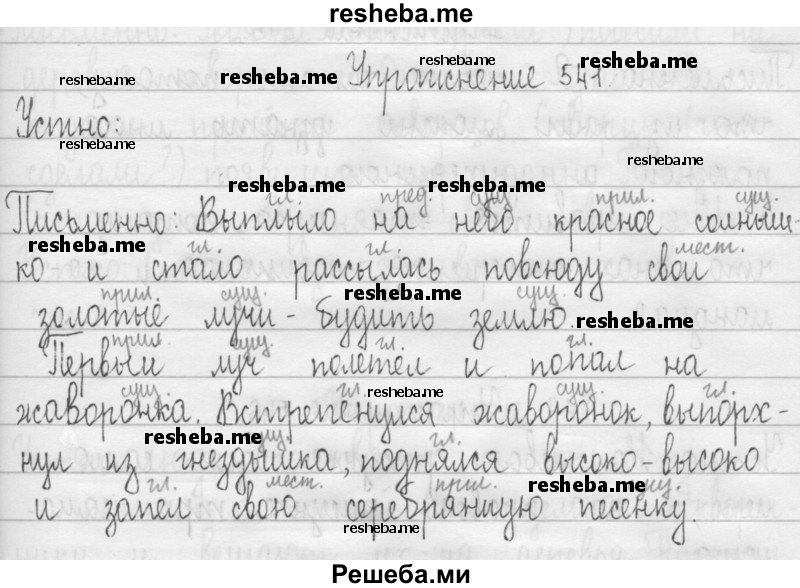 resheba.me
resheba.me
resheba.me resheba.me Упражнение 541. resheba.me
Устно:
resheba.me
resheba.me
resheba.me resheba.me
гл. пред. сущ. прил. сущ.
Письменно: Выплыло на небо красное солныш-
resheba.me гл. гл. мест.
ко и стало рассылась повсюду свои
прил. сущ. resheba.me сущ.
золотые лучи - будить землю. resheba.me
прил. сущ. гл. гл.
Первый луч полетел и попал на
сущ. гл. resheba.me сущ. гл.
жаворонка. Встрепенулся жаворонок, выпорх-
resheba.me сущ. гл.
нул из гнездышка, поднялся высоко-высоко
гл. мест. прил. resheba.me сущ.
и запел свою серебрянную песенку.
resheba.me
Решеба.ми